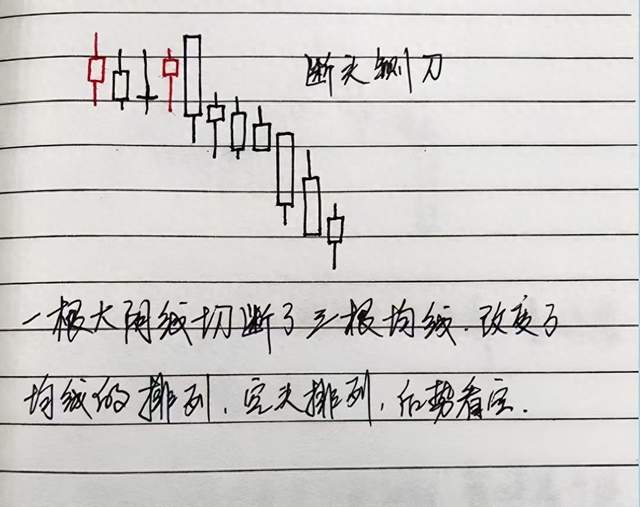 断头铡刀
一根大阴线切断了三根均线.改变了
均线的排列,空头排列,后势看空.